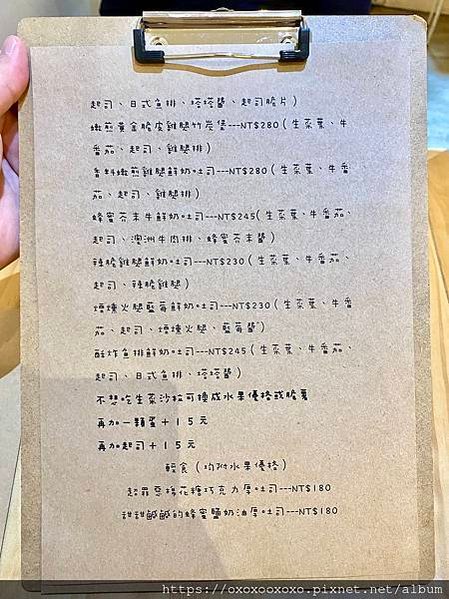 起司、日式魚排、塔塔醬、起司脆片)
嫩煎黃金脆皮雞腿竹炭堡---NT$280(生菜葉、牛
番茄、起司、雞腿排)
香料嫩煎雞腿鮮奶吐司---NT$280(生菜葉、牛番
茄、起司、雞腿排)
蜂蜜芥末牛鮮奶吐司---NT$245(生菜葉、牛番茄、
起司、澳洲牛肉排、蜂蜜芥末醬)
辣脆雞腿鮮奶吐司---NT$230(生菜葉、牛番茄、
起司、辣脆雞腿)
煙燻火腿藍莓鮮奶吐司---NT$230(生菜葉、牛番
茄、起司、煙燻火腿、藍莓醬)
酥炸魚排鮮奶吐司---NT$245(生菜葉、牛番茄、
起司、日式魚排、塔塔醬)
不想吃生菜沙拉可換成水果優格或脆薯
再加一顆蛋+15元
再加起司+15元
輕食(均附水果優格)
超罪惡棉花糖巧克力厚吐司---NT$180
甜甜鹹鹹的蜂蜜鹽奶油厚吐司---NT$180
https://oxoxooxoxo.pixnet.net/album